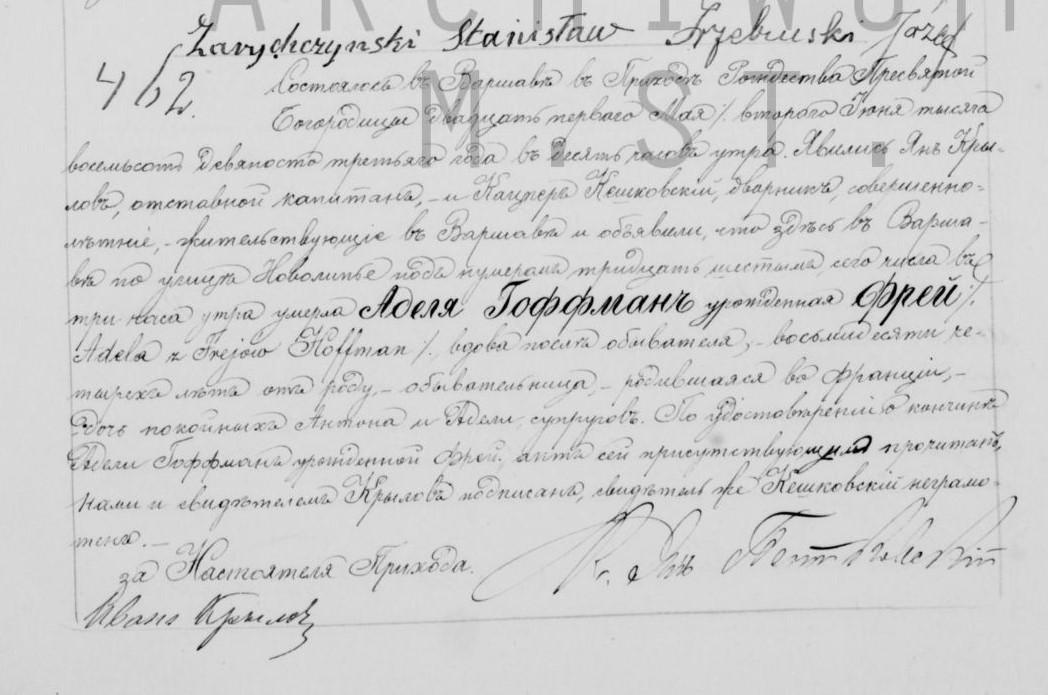 ARCHIWUM
M. ST.
Zarychczynski Stanisław Trzebuski Józef
462.
Состоялось въ Варшавѣ въ Приходѣ Рождества Пресвятой
Богородицы двадцать перваго Мая /. втораго Іюня тысяча
восемьсотъ девяносто третьяго года въ десять часовъ утра. Явились Янъ Кры-
ловъ, отставной капитанъ, – и Кацперъ Кешковскій, дворникъ, совершенно-
лѣтніе, – жительствующіе въ Варшавѣ и объявили, что здѣсь въ Варша-
вѣ по улицѣ Новолипье подъ нумеромъ тридцать шестымъ, сего числа въ
три часа утра умерла Аделя Гоффманъ урожденная Фрей /.
Adela z Frejów Hoffman /. вдова послѣ обывателя, – восьмидесяти че-
тырехъ лѣтъ отъ роду, – обывательница, – родившаяся во Франціи, –
дочь покойныхъ Антона и Адели супруговъ. По удостовѣреніи о кончинѣ
Адели Гоффманъ урожденной Фрей, актъ сей присутствующимъ прочитанъ,
Нами и свидѣтелемъ Крыловъ подписанъ, свидѣтель же Кешковскій неграмо-
тенъ. –
за Настоятеля Прихода.
Иванъ Крыловъ